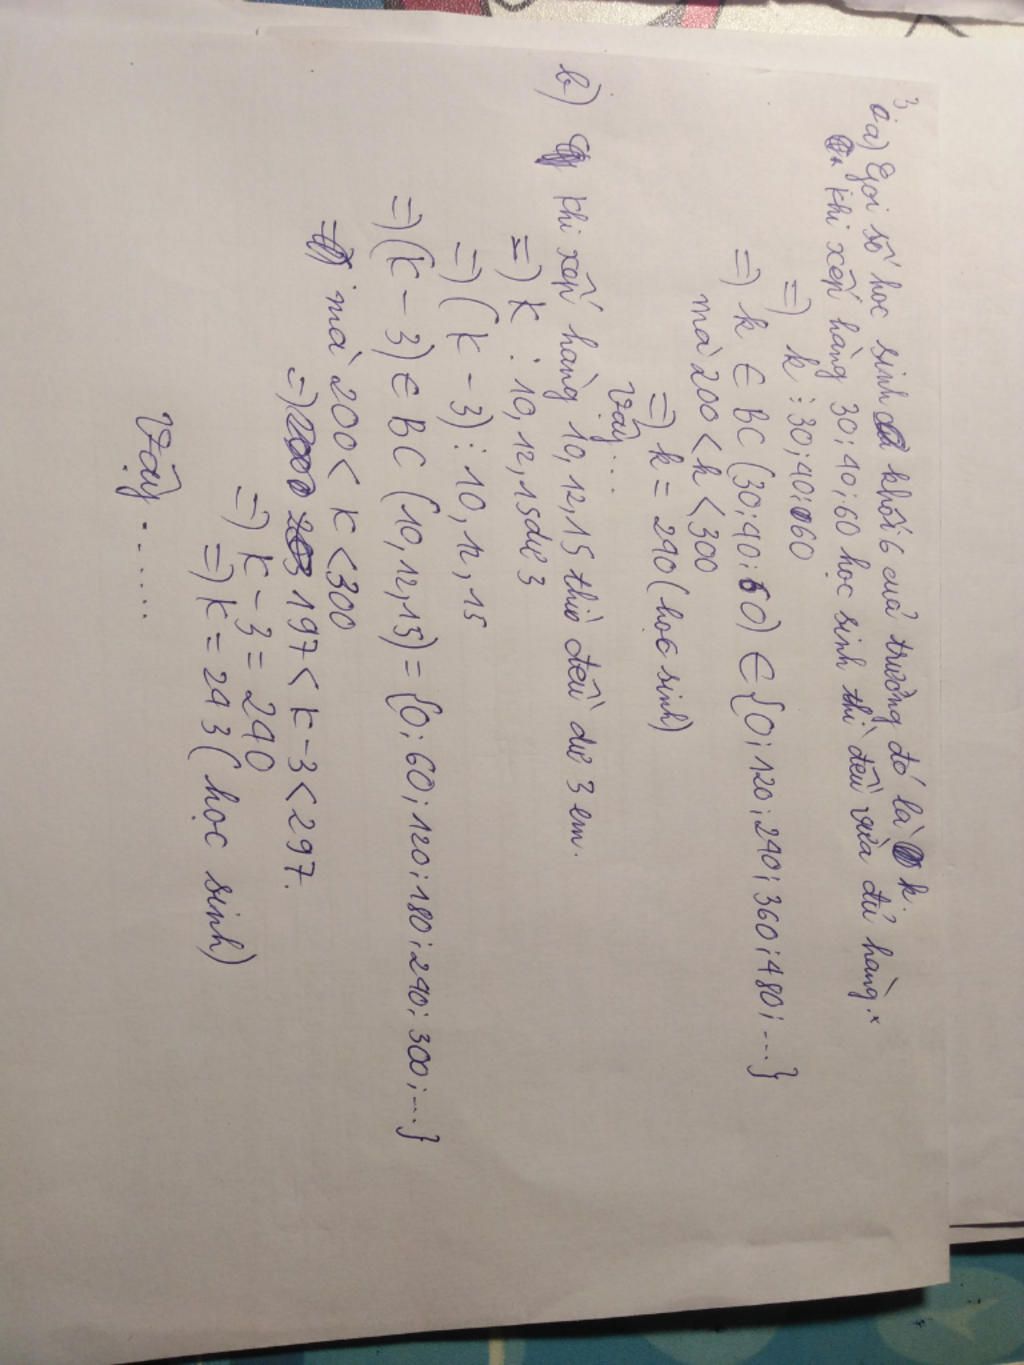 3
a) Gọi số học sinh khối 6 của trường đó là k.
khi xếp hàng 30; 40; 60 học sinh thì đều vừa đủ hàng.
=) k ⋮ 30; 40; 60
=) k ∈ BC (30; 40; 60) ∈ {0; 120; 240; 360; 480; ...}
mà 200 < k < 300
=) k = 240 (học sinh)
Vậy...
b) khi xếp hàng 10, 12, 15 thì đều dư 3 em.
=) K : 10, 12, 15 dư 3
=) (K - 3) ⋮ 10, 12, 15
=) (K - 3) ∈ BC (10, 12, 15) = {0; 60; 120; 180; 240; 300; ...}
mà 200 < K < 300
=) 197 < K - 3 < 297.
=) K - 3 = 240
=) K = 243 (học sinh)
Vậy......